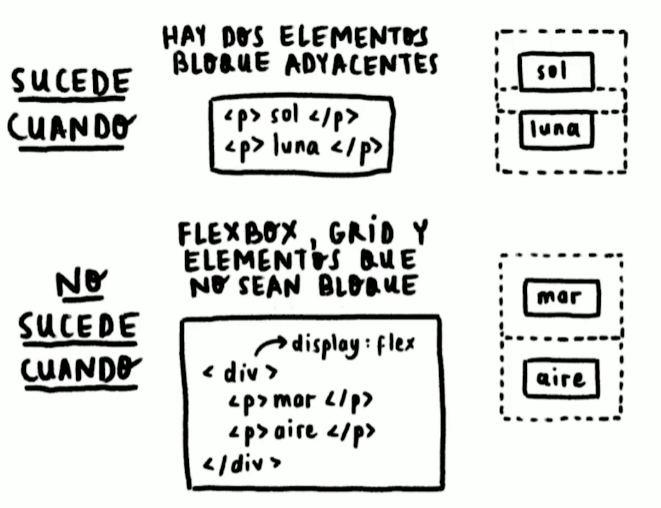 SUCEDE
CUANDO
HAY DOS ELEMENTOS
BLOQUE ADYACENTES
<p> sol </p>
<p> luna </p>
sol
luna
NO
SUCEDE
CUANDO
FLEXBOX, GRID Y
ELEMENTOS QUE
NO SEAN BLOQUE
display: flex
<div>
<p>mar </p>
<p>aire </p>
</div>
mar
aire